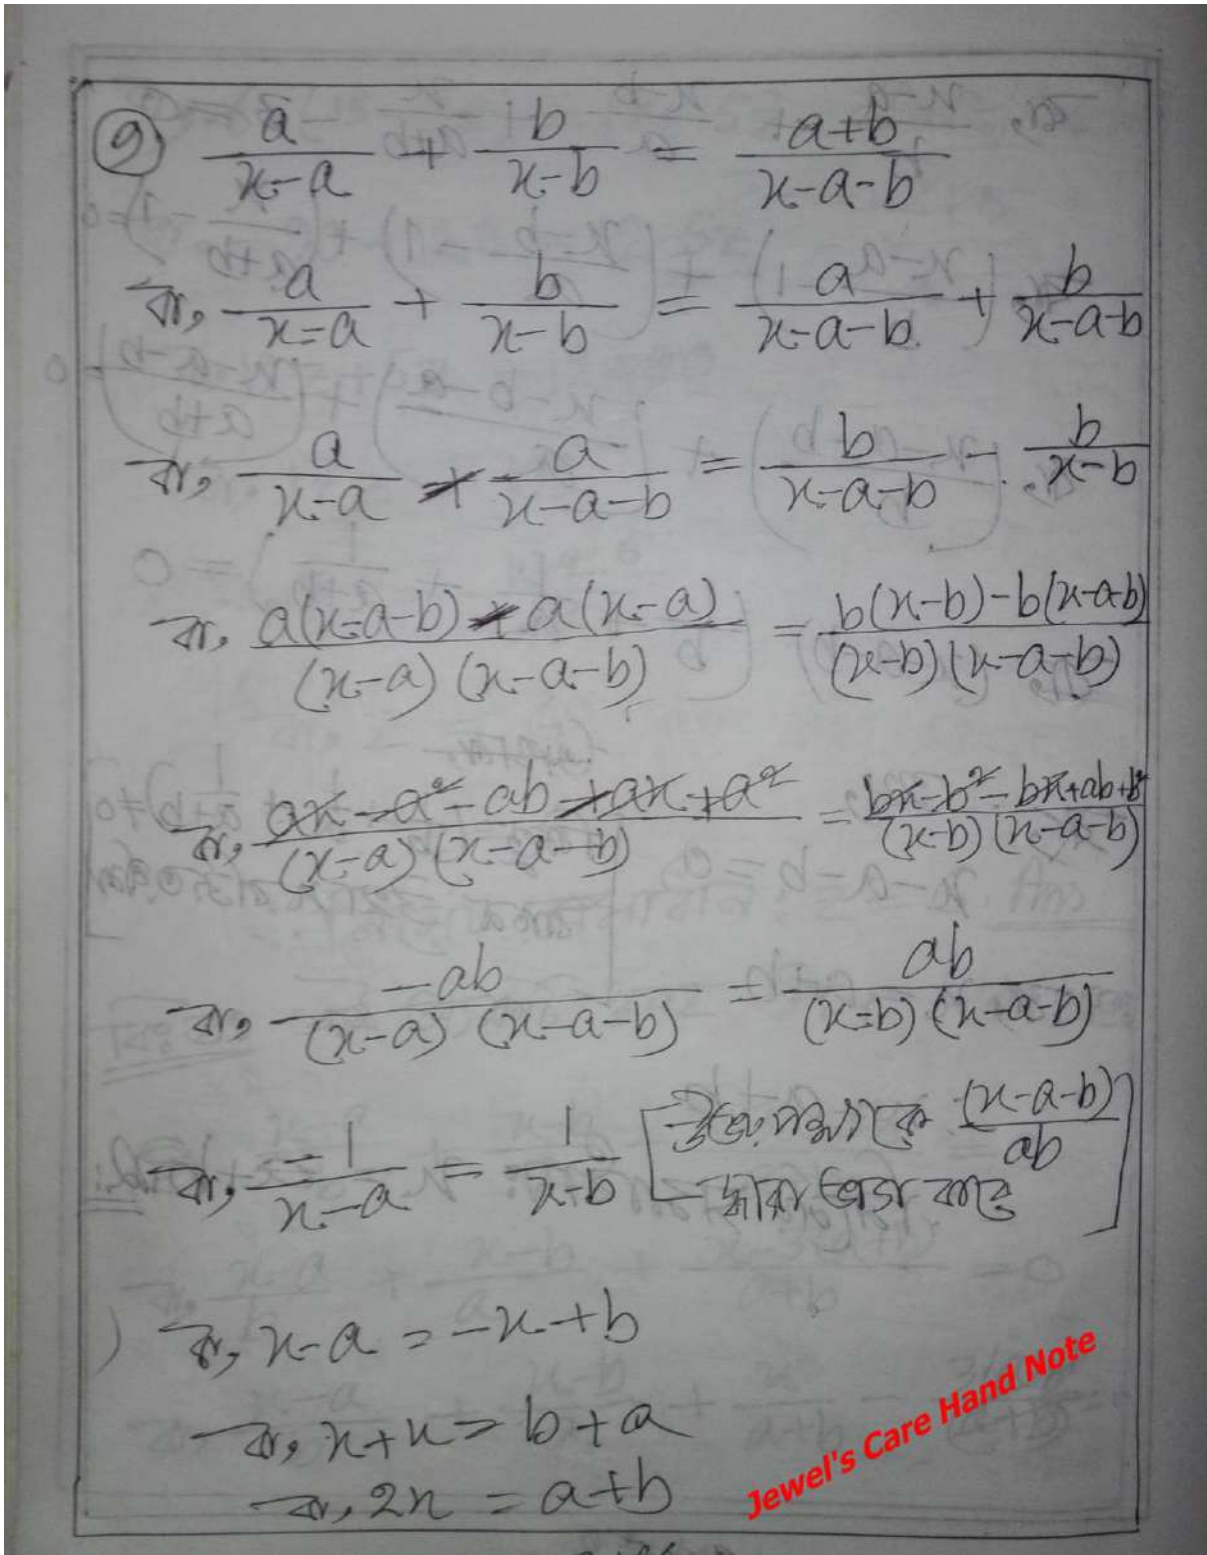 ৭) a/(x-a) + b/(x-b) = (a+b)/(x-a-b)
বা, a/(x-a) + b/(x-b) = a/(x-a-b) + b/(x-a-b)
বা, a/(x-a) - a/(x-a-b) = b/(x-a-b) - b/(x-b)
বা, (a(x-a-b) - a(x-a))/((x-a)(x-a-b)) = (b(x-b) - b(x-a-b))/((x-b)(x-a-b))
বা, (ax - a² - ab - ax + a²)/((x-a)(x-a-b)) = (bx - b² - bx + ab + b²)/((x-b)(x-a-b))
বা, -ab/((x-a)(x-a-b)) = ab/((x-b)(x-a-b))
বা, -1/(x-a) = 1/(x-b) [উভয়পক্ষকে (x-a-b)/ab
দ্বারা ভাগ করে]
বা, x-a = -x+b
বা, x+x = b+a
বা, 2x = a+b
Jewel's Care Hand Note